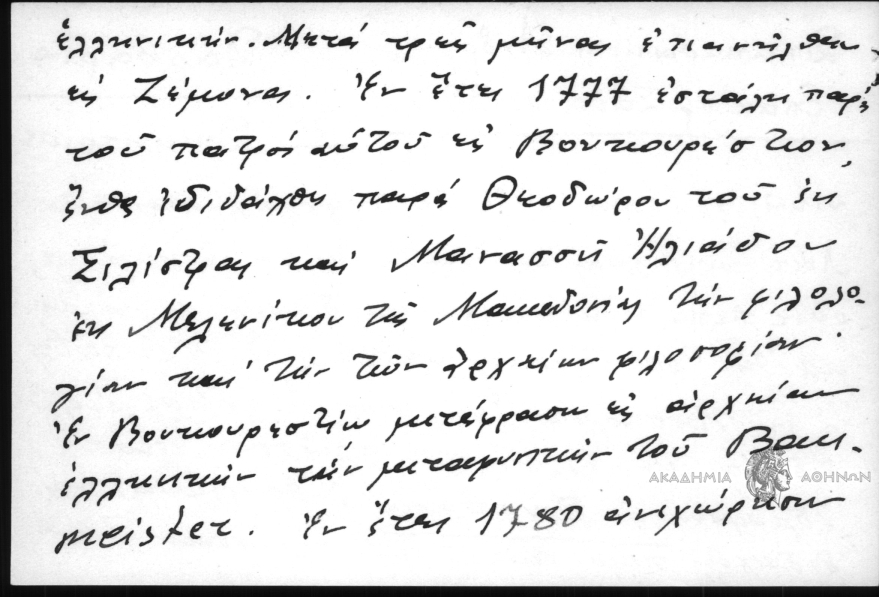 ἑλληνικήν. Μετά τρεῖς μῆνας ἐπανῆλθεν
εἰς Ζέμονα. Ἐν ἔτει 1777 ἐστάλη παρά
τοῦ πατρός αὐτοῦ εἰς Βουκουρέστιον,
ἔνθα ἐδιδάχθη παρά Θεοδώρου τοῦ ἐκ
Σιλίστρας καί Μανασσῆ Ἠλιάδου
ἐκ Μελενίκου τῆς Μακεδονίας τήν φιλολο-
γίαν καί τήν τῶν ἀρχαίων φιλοσοφίαν.
Ἐν Βουκουρεστίῳ μετέφρασεν εἰς ἀρχαίαν
ἑλληνικήν τήν μεταφυσικήν τοῦ Baumeister
meister. Ἐν ἔτει 1780 ἀνεχώρησεν
ΑΚΑΔΗΜΙΑ ΑΘΗΝΩΝ